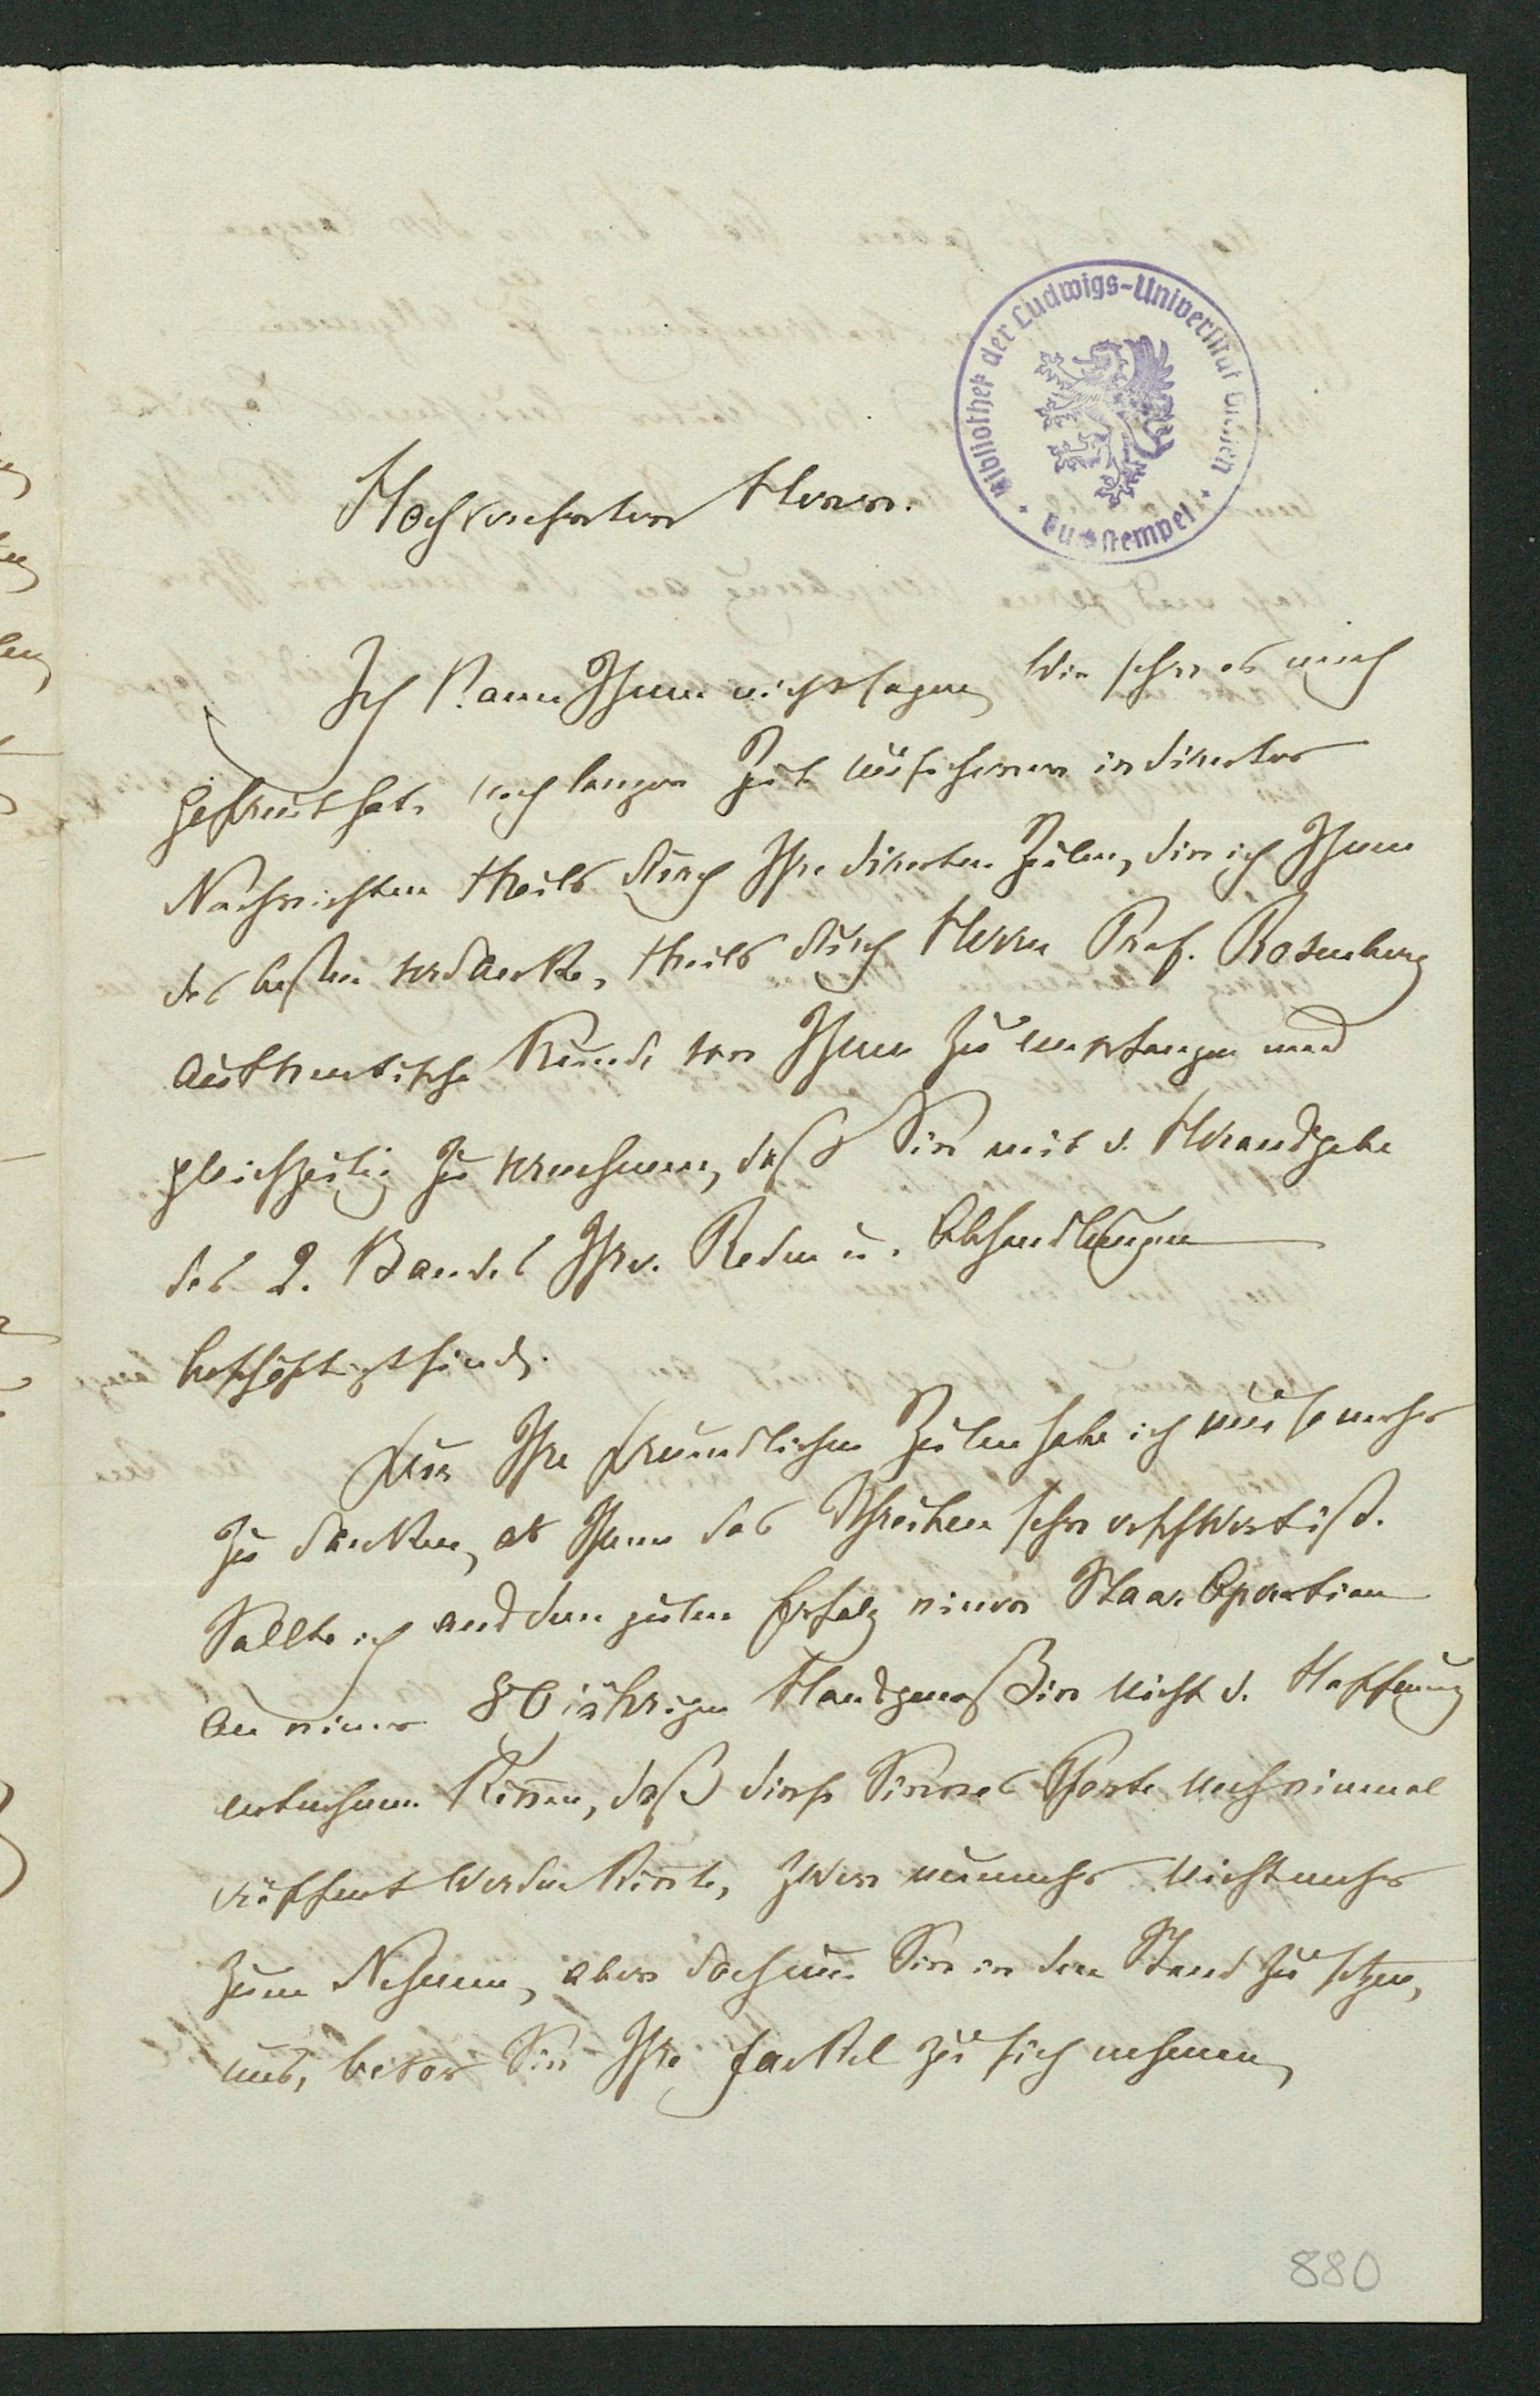 Bibliothek der Ludwigs-Universität Gießen
Buchstempel
Hochverehrter Herr.
Ich kann Ihnen nicht sagen wie sehr es mich
gefreut hat, nach langer Zeit unsicherer indirecter
Nachrichten theils durch Ihre directen Zeilen, die ich Ihnen
des besten verdanke, theils durch Herrn Prof. Rosenberg
authentische Kunde von Ihnen zu empfangen und
gleichzeitig zu vernehmen, daß Sie mit d. Herausgabe
des 2. Bandes Ihrer Reden u. Abhandlungen
beschäftigt sind.
Für Ihre freundlichen Zeilen habe ich um so mehr
zu danken, als Ihnen das Schreiben sehr erschwert ist.
Sollte ich aus dem guten Erfolg einer Staar Operation
an einer 80jährigen Hausgenoßin nicht d. Hoffnung
entnehmen können, daß diese Sinnes Pforte noch einmal
eröffnet werden könnte, zwar nunmehr nicht mehr
zum Nehmen, aber doch um Sie in den Stand zu setzen,
uns, bevor Sie Ihre Fackel zu sich nehmen,
880